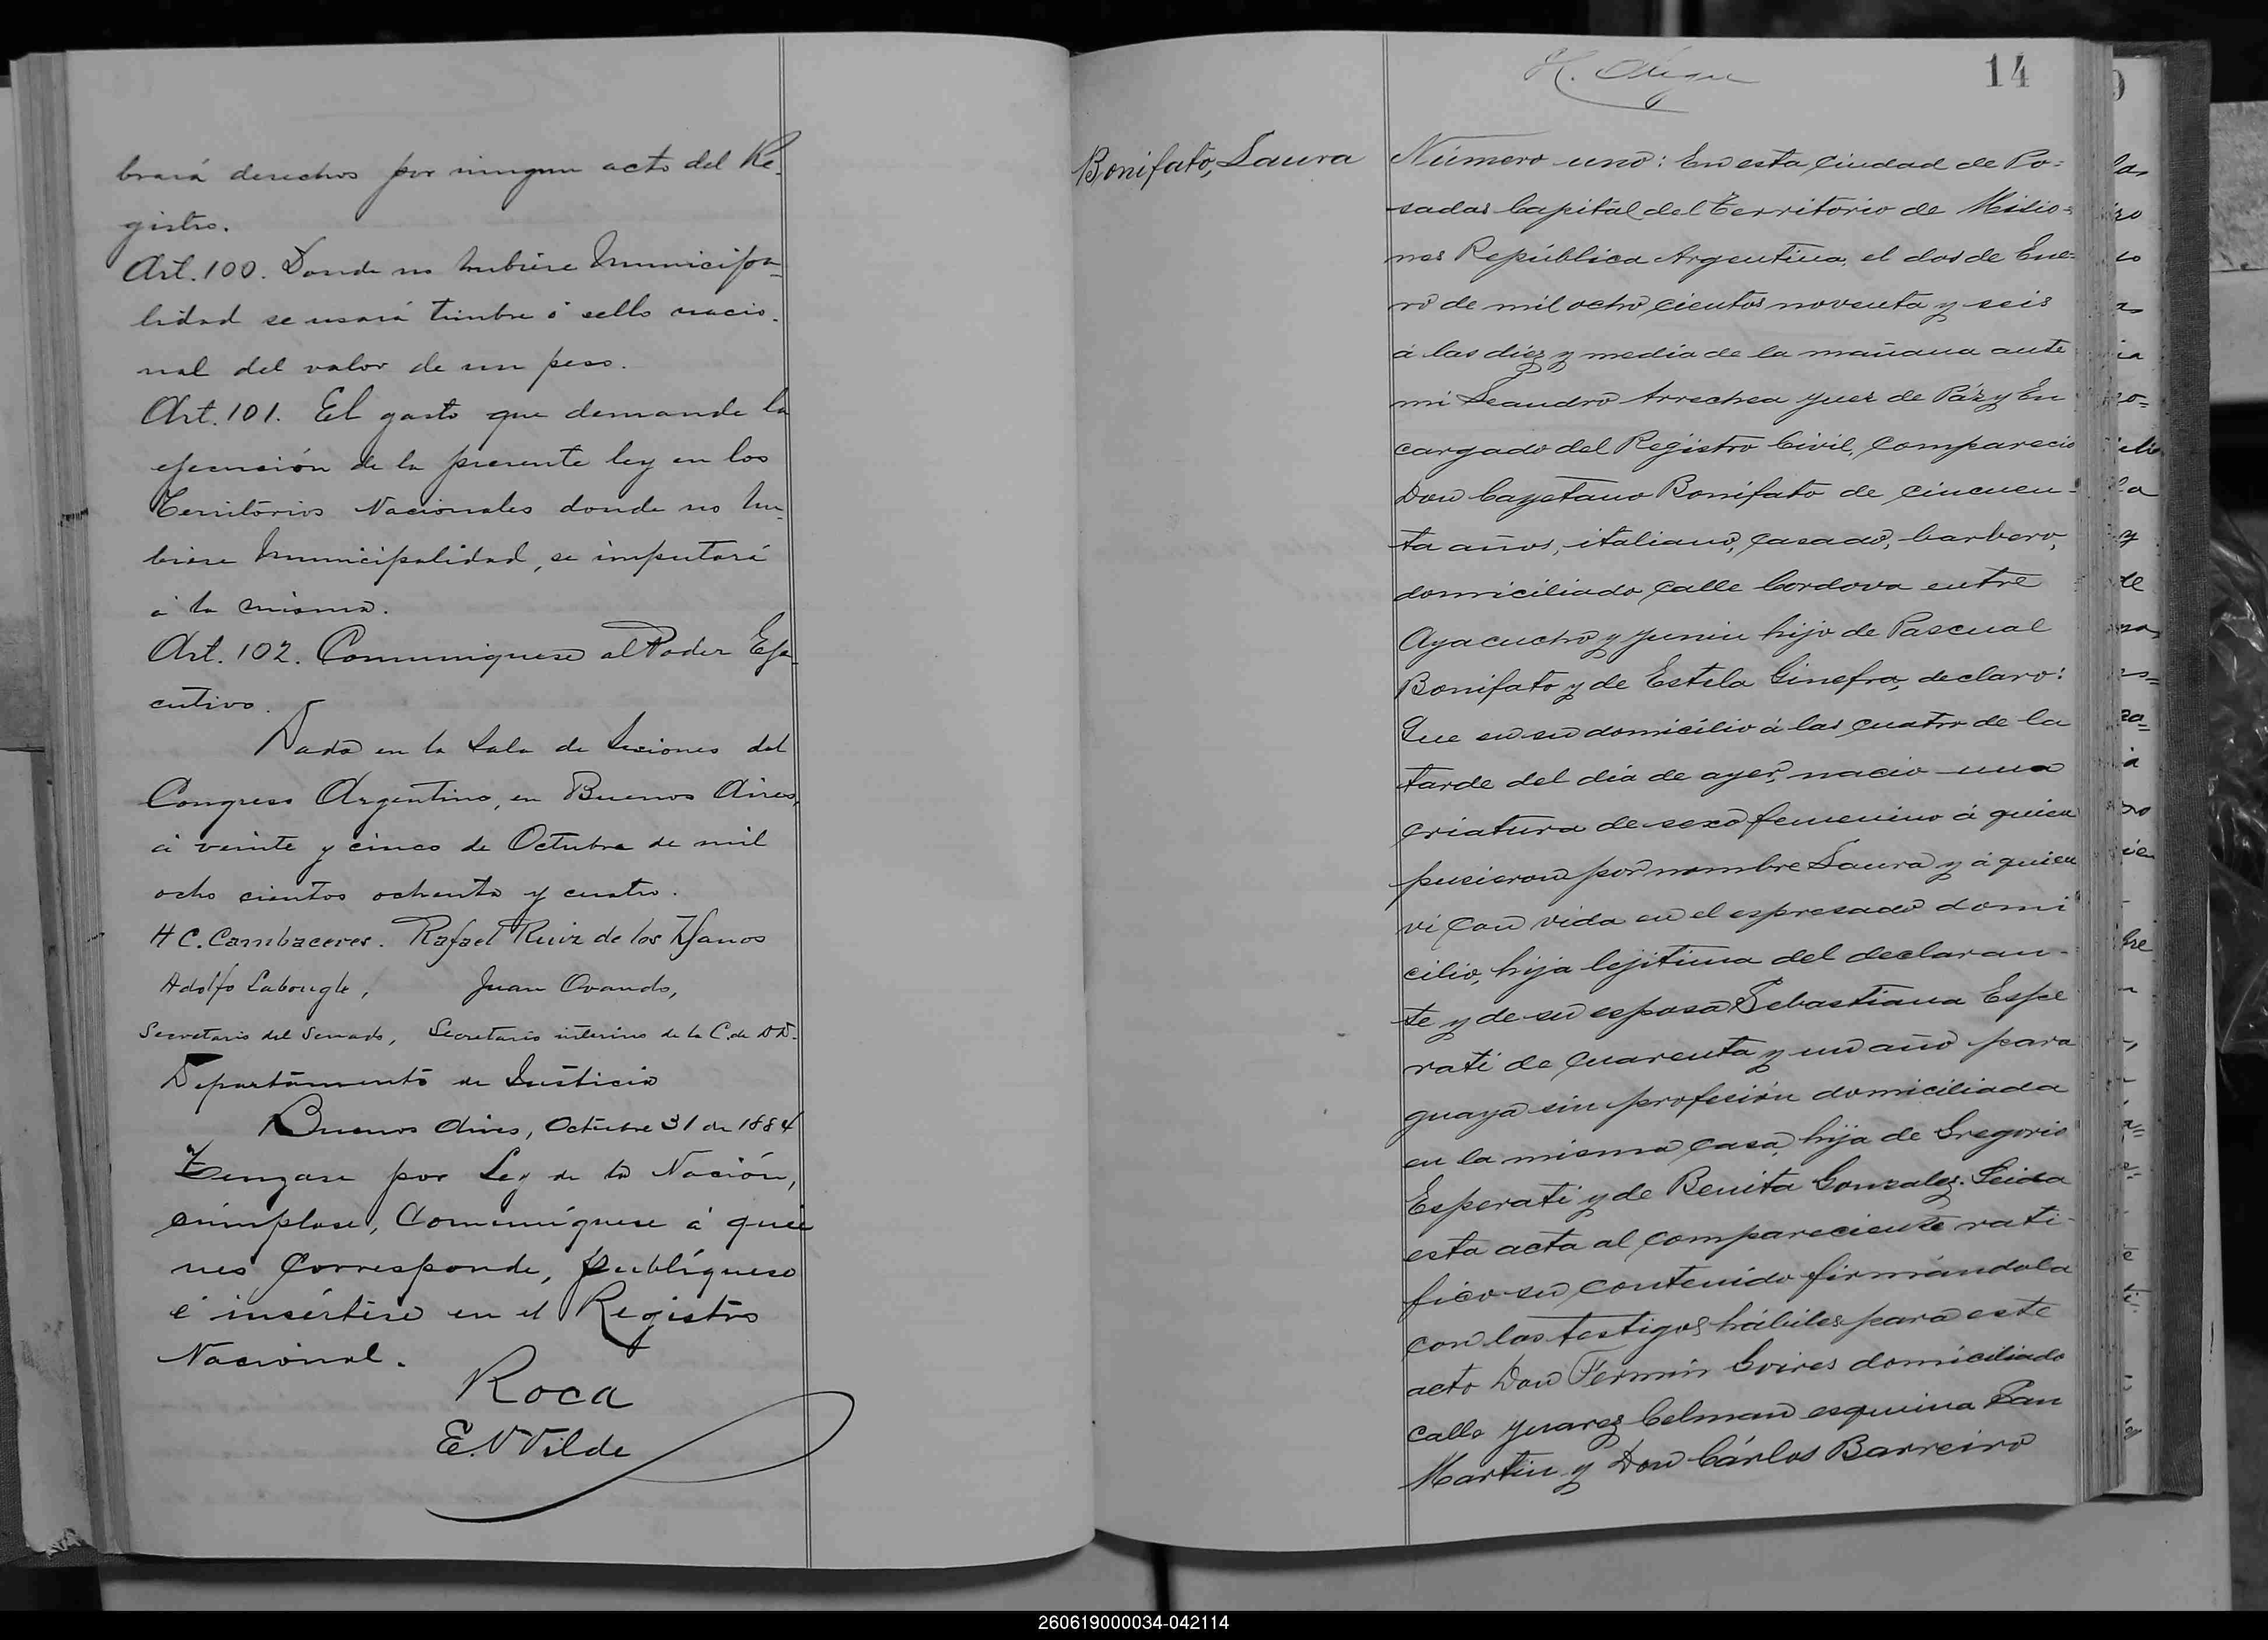 brará derechos por ningun acto del Re-
gistro.
Art. 100. Donde no hubiere Municipa-
lidad se usará timbre ó sello nacio-
nal del valor de un peso.
Art. 101. El gasto que demande la
ejecución de la presente ley en los
Territorios Nacionales donde no hu-
biere Municipalidad, se imputará
á la misma.
Art. 102. Comuniquese al Poder Eje-
cutivo.
Dada en la Sala de Sesiones del
Congreso Argentino, en Buenos Aires,
á veinte y cinco de Octubre de mil
ocho cientos ochenta y cuatro.
H C. Cambaceres. Rafael Ruiz de los Llanos
Adolfo Labougle, Juan Ovando,
Secretario del Senado, Secretario interino de la C. de DD.
Departamento de Justicia
Buenos Aires, Octubre 31 de 1884
Tengase por Ley de la Nación,
cúmplase, Comuníquese á quie
nes Corresponde, publíquese
é insértese en el Registro
Nacional.
Roca
E. Wilde
14
Bonifato, Laura
Número uno: En esta Ciudad de Po-
sadas Capital del Territorio de Misio-
nes República Argentina, el dos de Ene-
ro de mil ocho cientos noventa y seis
á las diez y media de la mañana ante
mi Leandro Arrechea Juez de Páz y En
cargado del Registro Civil, comparecio
Don Cayetano Bonifato de cincuen-
ta años, italiano, casado, barbero,
domiciliado calle Cordova entre
Ayacucho y Junin hijo de Pascual
Bonifato y de Estela Ginefra, declaro:
Que en su domicilio á las cuatro de la
tarde del dia de ayer, nacio una
criatura de sexo femenino á quien
pusieron por nombre Laura y á quien
vi con vida en el espresado domi
cilio, hija lejitima del declaran-
te y de su esposa Sebastiana Espe
rati de cuarenta y un año para
guaya sin profesión domiciliada
en la misma casa, hija de Gregorio
Esperati y de Benita Gonzalez. Leida
esta acta al compareciente rati-
fico su contenido firmándola
con los testigos hábiles para este
acto Don Fermin Goires domiciliado
calle Juarez Celman esquina San
Martin y Don Cárlos Barreiro
260619000034-042114